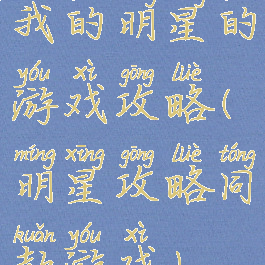 我的明星的
yóu xì gōng lüè
游戏攻略(
míng xīng gōng lüè tóng
明星攻略同
kuǎn yóu xì
款游戏)